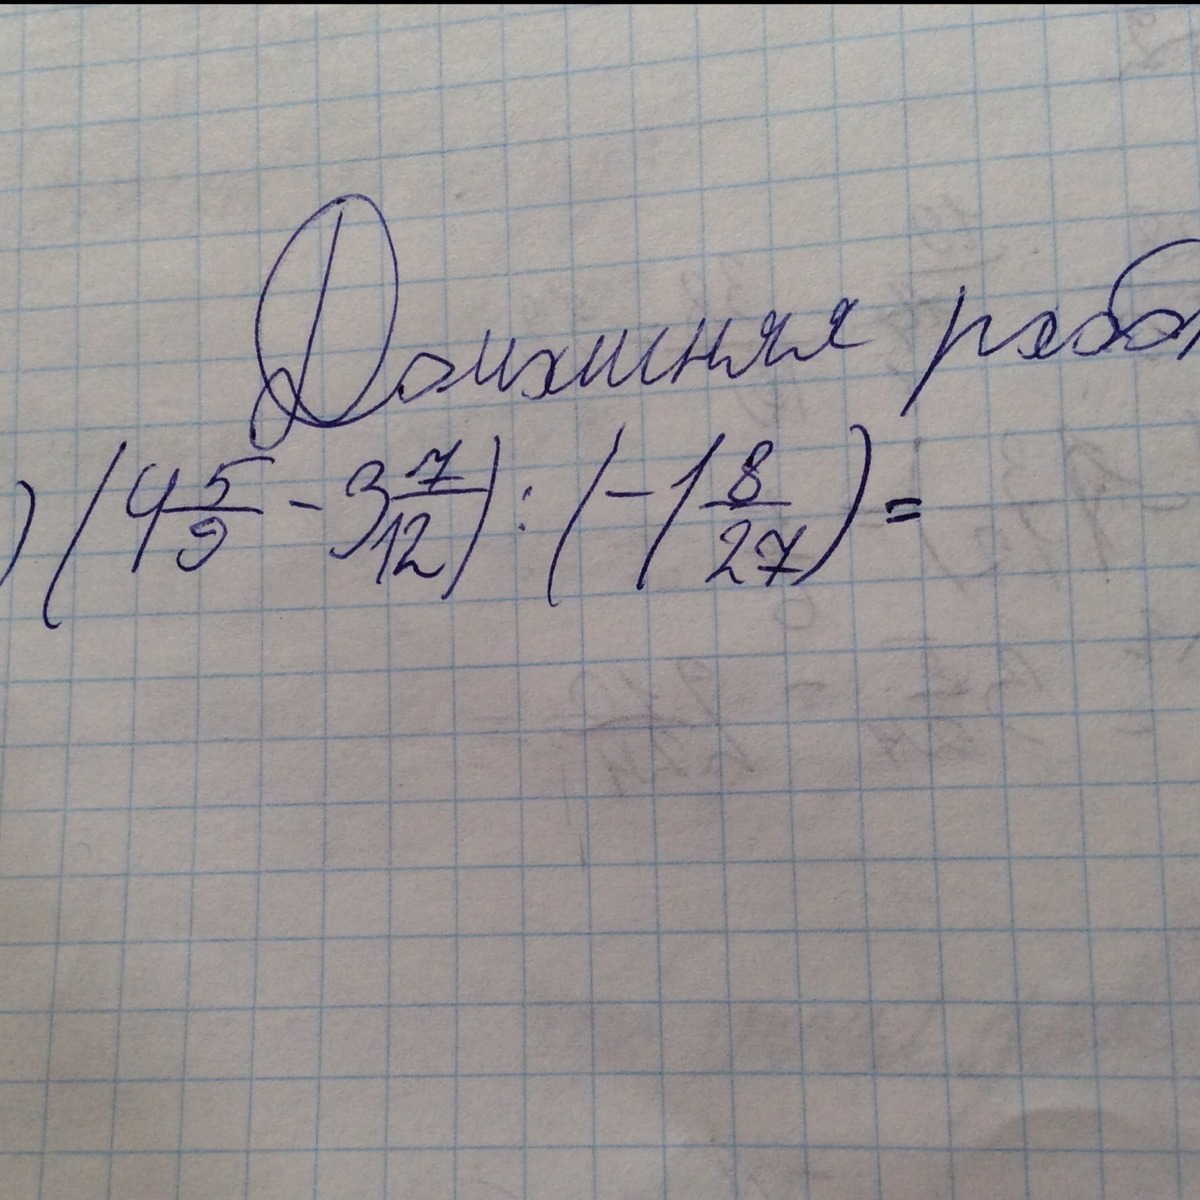 Домашняя рабо
) (4 5/9 - 3 7/12) : (-1 8/27) =